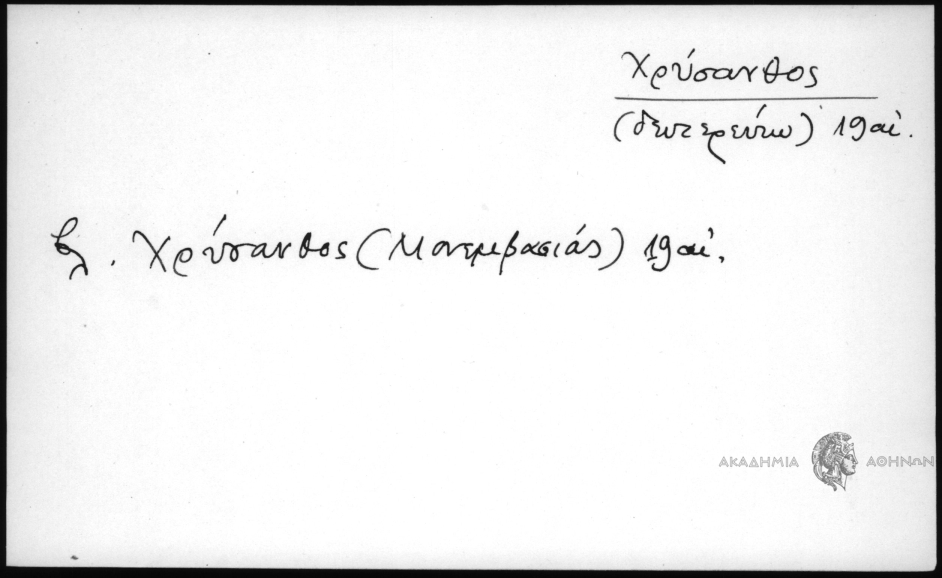 Χρύσανθος
(δευτερεύων) 19 αἰ.
βλ. Χρύσανθος (Μονεμβασιάς) 19 αἰ.
ΑΚΑΔΗΜΙΑ ΑΘΗΝΩΝ